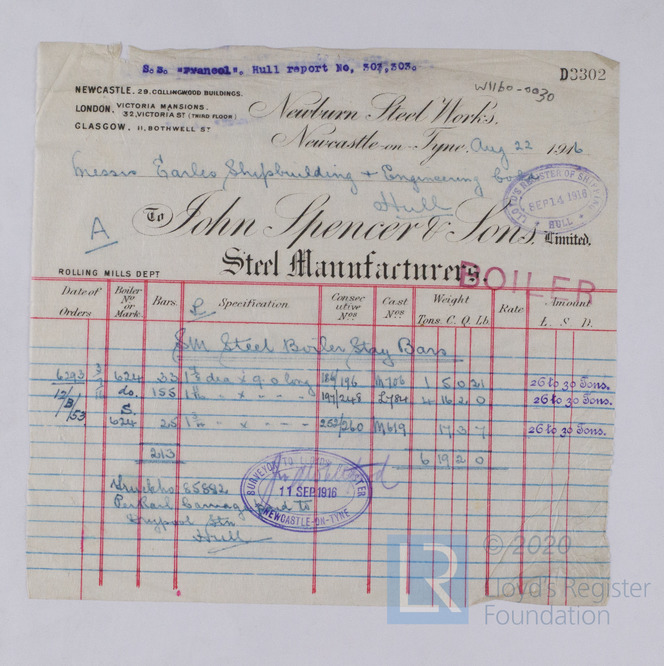 S.S. "Francol". Hull report No, 303,303.
D3302
W1160-0030
NEWCASTLE. 29. COLLINGWOOD BUILDINGS.
LONDON. VICTORIA MANSIONS.
32, VICTORIA ST (THIRD FLOOR)
GLASGOW. 11, BOTHWELL ST
Newburn Steel Works.
Newcastle-on-Tyne. Aug 22 1916
Messrs Earles Shipbuilding & Engineering
Hull
LLOYD'S REGISTER OF SHIPPING
SEP 14 1916
HULL
A
To John Spencer & Sons, Limited.
Steel Manufacturers.
BOILER
ROLLING MILLS DEPT
Date of Orders
Boiler No or Mark.
Bars.
Specification
Consecutive Nos
Cast Nos
Weight
Tons. C. Q. Lb.
Rate
Amount
L. S. D.
SM Steel Boiler Stay Bars
6293 624 33 dia x 9 0 long 196 M706 1 5 0 21 26 to 30 Tons.
do. 155 " x " " " 197/248 L784 4 16 2 0 26 to 30 Tons.
S.
624 25 " x " " " 260 M619 17 3 7 26 to 30 Tons.
213
6 19 2 0
SURVEYOR TO LLOYD'S REGISTER
11 SEP 1916
NEWCASTLE-ON-TYNE
Truck No 85892
Per Rail Carriage Paid to
Stn
Hull
LR
© 2020
Lloyd's Register
Foundation